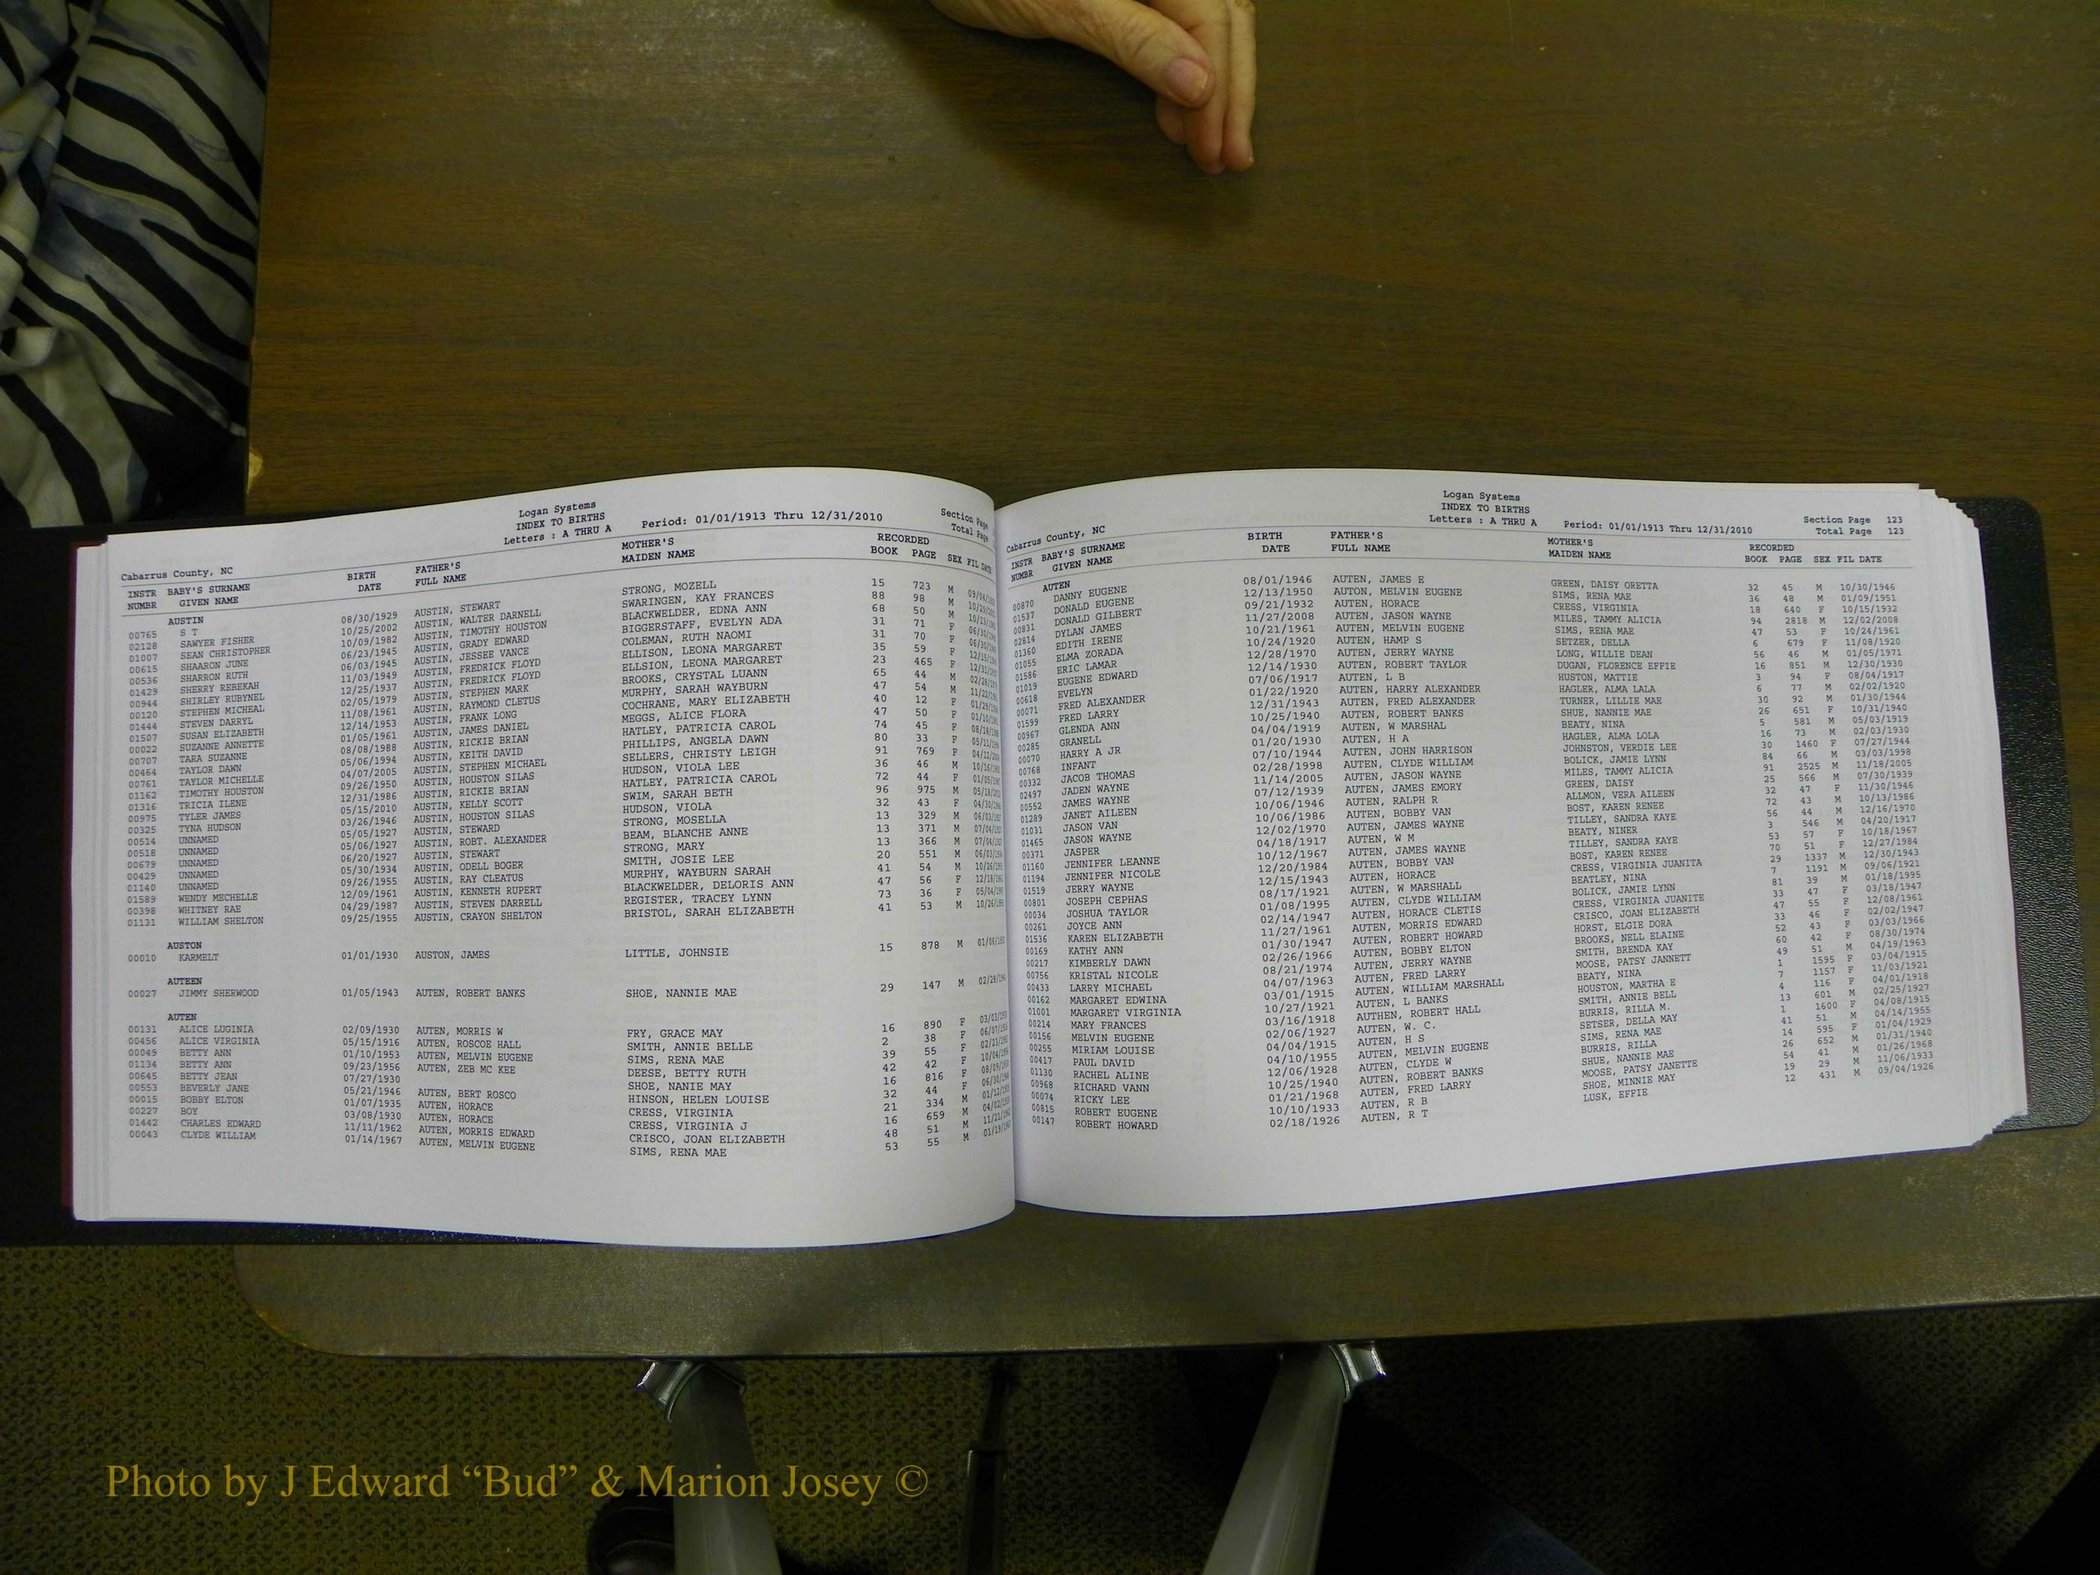 Logan Systems
INDEX TO BIRTHS
Cabarrus County, NC Letters : A THRU A Period: 01/01/1913 Thru 12/31/2010 Section Page
Total Page
INSTR BABY'S SURNAME BIRTH FATHER'S MOTHER'S RECORDED
NUMBR GIVEN NAME DATE FULL NAME MAIDEN NAME BOOK PAGE SEX FIL DATE
AUSTIN
00765 S T 08/30/1929 AUSTIN, STEWART STRONG, MOZELL 15 723 M
02128 SAWYER FISHER 10/25/2002 AUSTIN, WALTER DARNELL SWARINGEN, KAY FRANCES 88 98 M
01007 SEAN CHRISTOPHER 10/09/1982 AUSTIN, TIMOTHY HOUSTON BLACKWELDER, EDNA ANN 68 50 M
00615 SHAARON JUNE 06/23/1945 AUSTIN, GRADY EDWARD BIGGERSTAFF, EVELYN ADA 31 71 F
00536 SHARRON RUTH 06/03/1945 AUSTIN, JESSEE VANCE COLEMAN, RUTH NAOMI 31 70 F
01429 SHERRY REBEKAH 11/03/1949 AUSTIN, FREDRICK FLOYD ELLISON, LEONA MARGARET 35 59 F
00944 SHIRLEY RUBYNEL 12/25/1937 AUSTIN, FREDRICK FLOYD ELLSION, LEONA MARGARET 23 465 F
00120 STEPHEN MICHEAL 02/05/1979 AUSTIN, STEPHEN MARK BROOKS, CRYSTAL LUANN 65 44 M
01444 STEVEN DARRYL 11/08/1961 AUSTIN, RAYMOND CLETUS MURPHY, SARAH WAYBURN 47 54 M
01507 SUSAN ELIZABETH 12/14/1953 AUSTIN, FRANK LONG COCHRANE, MARY ELIZABETH 40 12 F
00022 SUZANNE ANNETTE 01/05/1961 AUSTIN, JAMES DANIEL MEGGS, ALICE FLORA 47 50 F
00707 TARA SUZANNE 08/08/1988 AUSTIN, RICKIE BRIAN HATLEY, PATRICIA CAROL 74 45 F
00464 TAYLOR DAWN 05/06/1994 AUSTIN, KEITH DAVID PHILLIPS, ANGELA DAWN 80 33 F
00761 TAYLOR MICHELLE 04/07/2005 AUSTIN, STEPHEN MICHAEL SELLERS, CHRISTY LEIGH 91 769 F
01162 TIMOTHY HOUSTON 09/26/1950 AUSTIN, HOUSTON SILAS HUDSON, VIOLA LEE 36 46 M
01316 TRICIA ILENE 12/31/1986 AUSTIN, RICKIE BRIAN HATLEY, PATRICIA CAROL 72 44 F
00975 TYLER JAMES 05/15/2010 AUSTIN, KELLY SCOTT SWIM, SARAH BETH 96 975 M
00325 TYNA HUDSON 03/26/1946 AUSTIN, HOUSTON SILAS HUDSON, VIOLA 32 43 F
00514 UNNAMED 05/05/1927 AUSTIN, STEWARD STRONG, MOSELLA 13 329 M
00518 UNNAMED 05/06/1927 AUSTIN, ROBT. ALEXANDER BEAM, BLANCHE ANNE 13 371 M
00679 UNNAMED 06/20/1927 AUSTIN, STEWART STRONG, MARY 13 366 M
00429 UNNAMED 05/30/1934 AUSTIN, ODELL BOGER SMITH, JOSIE LEE 20 551 M
01140 UNNAMED 09/26/1955 AUSTIN, RAY CLEATUS MURPHY, WAYBURN SARAH 41 54 M
01589 WENDY MECHELLE 12/09/1961 AUSTIN, KENNETH RUPERT BLACKWELDER, DELORIS ANN 47 56 F
00398 WHITNEY RAE 04/29/1987 AUSTIN, STEVEN DARRELL REGISTER, TRACEY LYNN 73 36 F
01131 WILLIAM SHELTON 09/25/1955 AUSTIN, CRAYON SHELTON BRISTOL, SARAH ELIZABETH 41 53 M
AUSTON
00010 KARMELT 01/01/1930 AUSTON, JAMES LITTLE, JOHNSIE 15 878 M
AUTEEN
00027 JIMMY SHERWOOD 01/05/1943 AUTEN, ROBERT BANKS SHOE, NANNIE MAE 29 147 M
AUTEN
00131 ALICE LUGINIA 02/09/1930 AUTEN, MORRIS W FRY, GRACE MAY 16 890 F
00456 ALICE VIRGINIA 05/15/1916 AUTEN, ROSCOE HALL SMITH, ANNIE BELLE 2 38 F
00049 BETTY ANN 01/10/1953 AUTEN, MELVIN EUGENE SIMS, RENA MAE 39 55 F
01134 BETTY ANN 09/23/1956 AUTEN, ZEB MC KEE DEESE, BETTY RUTH 42 42 F
00645 BETTY JEAN 07/27/1930 SHOE, NANIE MAY 16 816 F
00553 BEVERLY JANE 05/21/1946 AUTEN, BERT ROSCO HINSON, HELEN LOUISE 32 44 F
00015 BOBBY ELTON 01/07/1935 AUTEN, HORACE CRESS, VIRGINIA 21 334 M
00227 BOY 03/08/1930 AUTEN, HORACE CRESS, VIRGINIA J 16 659 M
01442 CHARLES EDWARD 11/11/1962 AUTEN, MORRIS EDWARD CRISCO, JOAN ELIZABETH 48 51 M
00043 CLYDE WILLIAM 01/14/1967 AUTEN, MELVIN EUGENE SIMS, RENA MAE 53 55 M
Logan Systems
INDEX TO BIRTHS
Cabarrus County, NC Letters : A THRU A Period: 01/01/1913 Thru 12/31/2010 Section Page 123
Total Page 123
INSTR BABY'S SURNAME BIRTH FATHER'S MOTHER'S RECORDED
NUMBR GIVEN NAME DATE FULL NAME MAIDEN NAME BOOK PAGE SEX FIL DATE
AUTEN
00870 DANNY EUGENE 08/01/1946 AUTEN, JAMES E GREEN, DAISY ORETTA 32 45 M 10/30/1946
01537 DONALD EUGENE 12/13/1950 AUTON, MELVIN EUGENE SIMS, RENA MAE 36 48 M 01/09/1951
00831 DONALD GILBERT 09/21/1932 AUTEN, HORACE CRESS, VIRGINIA 18 640 F 10/15/1932
02814 DYLAN JAMES 11/27/2008 AUTEN, JASON WAYNE MILES, TAMMY ALICIA 94 2818 M 12/02/2008
01360 EDITH IRENE 10/21/1961 AUTEN, MELVIN EUGENE SIMS, RENA MAE 47 53 F 10/24/1961
01055 ELMA ZORADA 10/24/1920 AUTEN, HAMP S SETZER, DELLA 6 679 F 11/08/1920
01586 ERIC LAMAR 12/28/1970 AUTEN, JERRY WAYNE LONG, WILLIE DEAN 56 46 M 01/05/1971
01019 EUGENE EDWARD 12/14/1930 AUTEN, ROBERT TAYLOR DUGAN, FLORENCE EFFIE 16 851 M 12/30/1930
00618 EVELYN 07/06/1917 AUTEN, L B HUSTON, MATTIE 3 94 F 08/04/1917
00071 FRED ALEXANDER 01/22/1920 AUTEN, HARRY ALEXANDER HAGLER, ALMA LALA 6 77 M 02/02/1920
01599 FRED LARRY 12/31/1943 AUTEN, FRED ALEXANDER TURNER, LILLIE MAE 30 92 M 01/30/1944
00967 GLENDA ANN 10/25/1940 AUTEN, ROBERT BANKS SHUE, NANNIE MAE 26 651 F 10/31/1940
00285 GRANELL 04/04/1919 AUTEN, W MARSHAL BEATY, NINA 5 581 M 05/03/1919
00070 HARRY A JR 01/20/1930 AUTEN, H A HAGLER, ALMA LOLA 16 73 M 02/03/1930
00768 INFANT 07/10/1944 AUTEN, JOHN HARRISON JOHNSTON, VERDIE LEE 30 1460 F 07/27/1944
00332 JACOB THOMAS 02/28/1998 AUTEN, CLYDE WILLIAM BOLICK, JAMIE LYNN 84 66 M 03/03/1998
02497 JADEN WAYNE 11/14/2005 AUTEN, JASON WAYNE MILES, TAMMY ALICIA 91 2525 M 11/18/2005
00552 JAMES WAYNE 07/12/1939 AUTEN, JAMES EMORY GREEN, DAISY 25 566 M 07/30/1939
01289 JANET AILEEN 10/06/1946 AUTEN, RALPH R ALLMON, VERA AILEEN 32 47 F 11/30/1946
01031 JASON VAN 10/06/1986 AUTEN, BOBBY VAN BOST, KAREN RENEE 72 43 M 10/13/1986
01465 JASON WAYNE 12/02/1970 AUTEN, JAMES WAYNE TILLEY, SANDRA KAYE 56 44 M 12/16/1970
00371 JASPER 04/18/1917 AUTEN, W M BEATY, NINER 3 546 M 04/20/1917
01160 JENNIFER LEANNE 10/12/1967 AUTEN, JAMES WAYNE TILLEY, SANDRA KAYE 53 57 F 10/18/1967
01194 JENNIFER NICOLE 12/20/1984 AUTEN, BOBBY VAN BOST, KAREN RENEE 70 51 F 12/27/1984
01519 JERRY WAYNE 12/15/1943 AUTEN, HORACE CRESS, VIRGINIA JUANITA 29 1337 M 12/30/1943
00801 JOSEPH CEPHAS 08/17/1921 AUTEN, W MARSHALL BEATLEY, NINA 7 1191 M 09/06/1921
00034 JOSHUA TAYLOR 01/08/1995 AUTEN, CLYDE WILLIAM BOLICK, JAMIE LYNN 81 39 M 01/18/1995
00261 JOYCE ANN 02/14/1947 AUTEN, HORACE CLETIS CRESS, VIRGINIA JUANITE 33 47 F 03/18/1947
01536 KAREN ELIZABETH 11/27/1961 AUTEN, MORRIS EDWARD CRISCO, JOAN ELIZABETH 47 55 F 12/08/1961
00169 KATHY ANN 01/30/1947 AUTEN, ROBERT HOWARD HORST, ELGIE DORA 33 46 F 02/02/1947
00217 KIMBERLY DAWN 02/26/1966 AUTEN, BOBBY ELTON BROOKS, NELL ELAINE 52 43 F 03/03/1966
00756 KRISTAL NICOLE 08/21/1974 AUTEN, JERRY WAYNE SMITH, BRENDA KAY 60 42 F 08/30/1974
00433 LARRY MICHAEL 04/07/1963 AUTEN, FRED LARRY MOOSE, PATSY JANNETT 49 51 M 04/19/1963
00162 MARGARET EDWINA 03/01/1915 AUTEN, WILLIAM MARSHALL BEATY, NINA 1 1595 F 03/04/1915
01001 MARGARET VIRGINIA 10/27/1921 AUTEN, L BANKS HOUSTON, MARTHA E 7 1157 F 11/03/1921
00214 MARY FRANCES 03/16/1918 AUTHEN, ROBERT HALL SMITH, ANNIE BELL 4 116 F 04/01/1918
00156 MELVIN EUGENE 02/06/1927 AUTEN, W. C. BURRIS, RILLA M. 13 601 M 02/25/1927
00255 MIRIAM LOUISE 04/04/1915 AUTEN, H S SETSER, DELLA MAY 1 1600 F 04/08/1915
00417 PAUL DAVID 04/10/1955 AUTEN, MELVIN EUGENE SIMS, RENA MAE 41 51 M 04/14/1955
01130 RACHEL ALINE 12/06/1928 AUTEN, CLYDE W BURRIS, RILLA 14 595 F 01/04/1929
00968 RICHARD VANN 10/25/1940 AUTEN, ROBERT BANKS SHUE, NANNIE MAE 26 652 M 01/31/1940
00074 RICKY LEE 01/21/1968 AUTEN, FRED LARRY MOOSE, PATSY JANETTE 54 41 M 01/26/1968
00815 ROBERT EUGENE 10/10/1933 AUTEN, R B SHOE, MINNIE MAY 19 29 M 11/06/1933
00147 ROBERT HOWARD 02/18/1926 AUTEN, R T LUSK, EFFIE 12 431 M 09/04/1926
Photo by J Edward “Bud” & Marion Josey ©